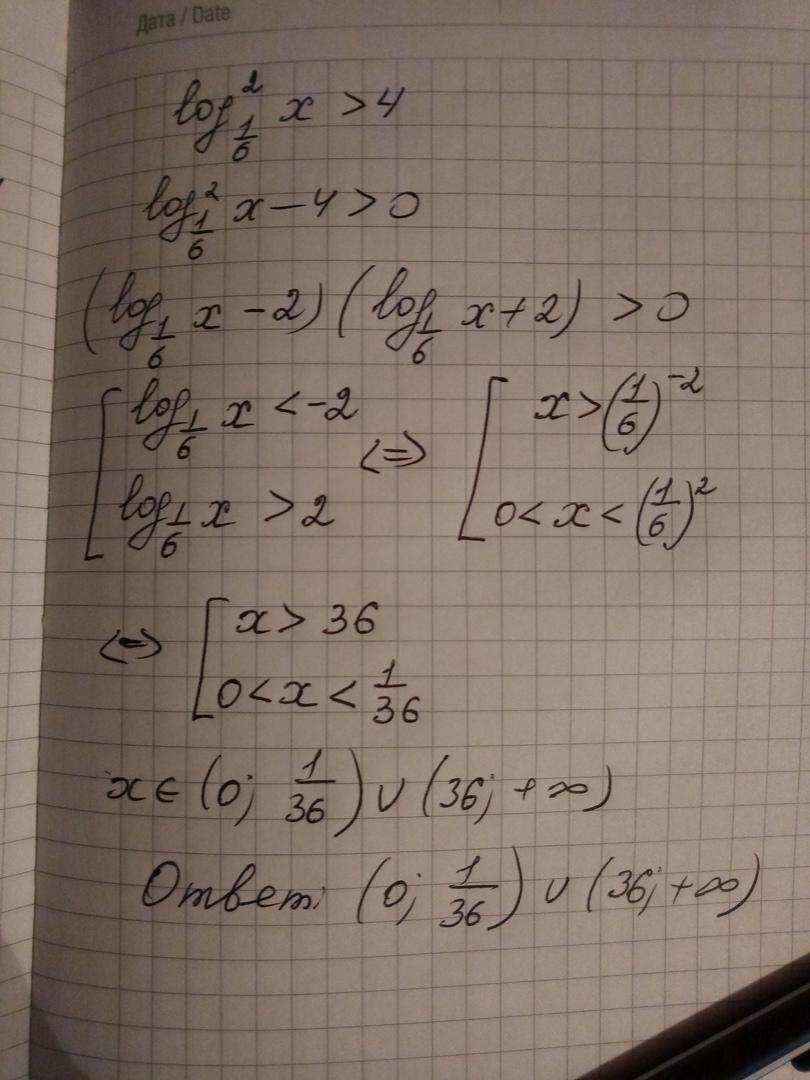 Дата / Date
log²_{1/6} x > 4
log²_{1/6} x − 4 > 0
(log_{1/6} x − 2) (log_{1/6} x + 2) > 0
[ log_{1/6} x < −2 ⇔ [ x > (1/6)^{−2}
log_{1/6} x > 2 0 < x < (1/6)²
⇔ [ x > 36
0 < x < 1/36
x ∈ (0; 1/36) ∪ (36; +∞)
Ответ: (0; 1/36) ∪ (36; +∞)